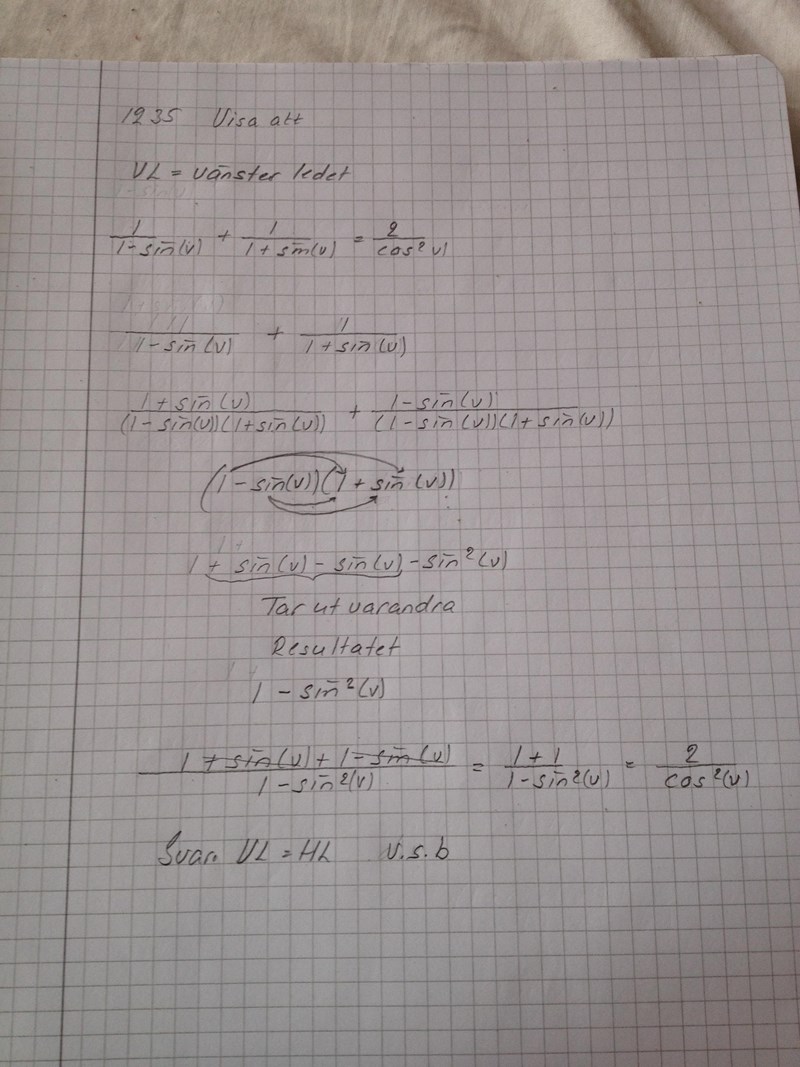 1235 Visa att
VL = vänster ledet
1/(1-sin(v)) + 1/(1+sin(v)) = 2/cos² v
1/(1-sin(v)) + 1/(1+sin(v))
(1+sin(v))/((1-sin(v))(1+sin(v))) + (1-sin(v))/((1-sin(v))(1+sin(v)))
(1-sin(v))(1+sin(v))
1 + sin(v) - sin(v) - sin²(v)
Tar ut varandra
Resultatet
1 - sin²(v)
(1+sin(v)+1-sin(v))/(1-sin²(v)) = (1+1)/(1-sin²(v)) = 2/cos²(v)
Svar. VL = HL v.s.b